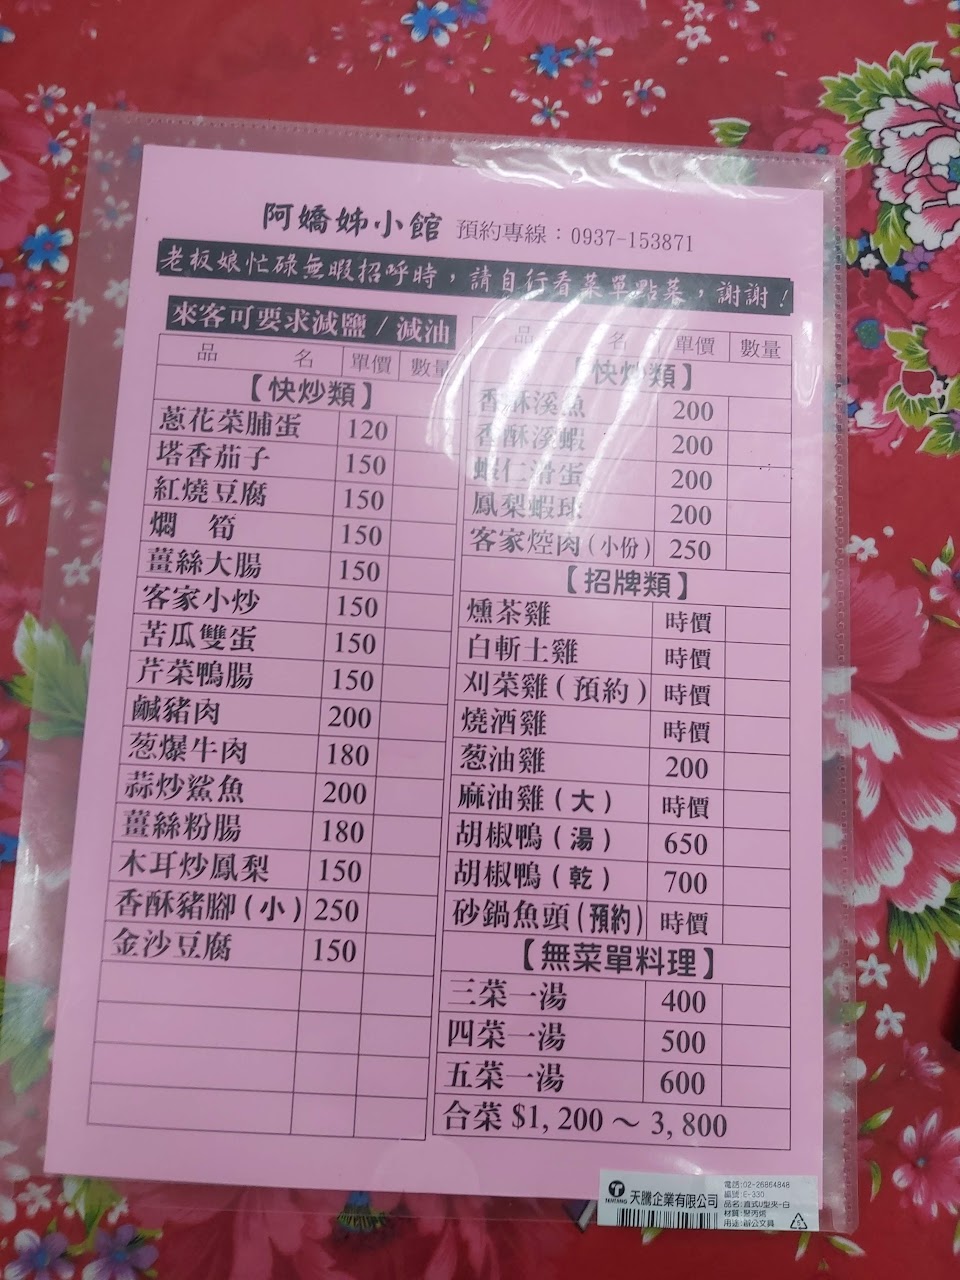 阿嬌姊小館 預約專線：0937-153871
老板娘忙碌無暇招呼時，請自行看菜單點菜，謝謝！
來客可要求減鹽/減油
品名 單價 數量
【快炒類】
蔥花菜脯蛋 120
塔香茄子 150
紅燒豆腐 150
燜 筍 150
薑絲大腸 150
客家小炒 150
苦瓜雙蛋 150
芹菜鴨腸 150
鹹豬肉 200
葱爆牛肉 180
蒜炒鯊魚 200
薑絲粉腸 180
木耳炒鳳梨 150
香酥豬腳(小) 250
金沙豆腐 150
品名 單價 數量
【快炒類】
香酥溪魚 200
香酥溪蝦 200
蝦仁滑蛋 200
鳳梨蝦球 200
客家焢肉(小份) 250
【招牌類】
燻茶雞 時價
白斬土雞 時價
刈菜雞(預約) 時價
燒酒雞 時價
葱油雞 200
麻油雞(大) 時價
胡椒鴨(湯) 650
胡椒鴨(乾) 700
砂鍋魚頭(預約) 時價
【無菜單料理】
三菜一湯 400
四菜一湯 500
五菜一湯 600
合菜 $1,200～3,800
天騰企業有限公司
電話:02-26864848
編號:E-330
品名:直式U型夾-白
材質:聚丙烯
用途:辦公文具